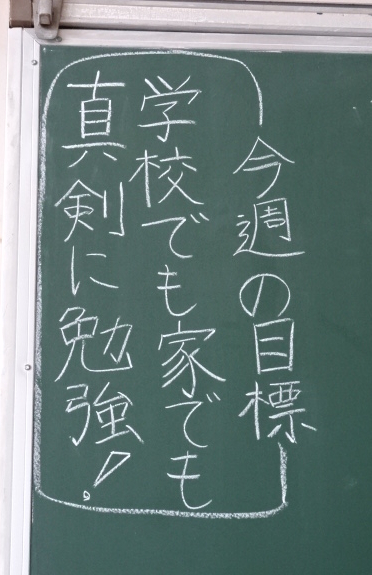 今週の目標
学校でも家でも
真剣に勉強!